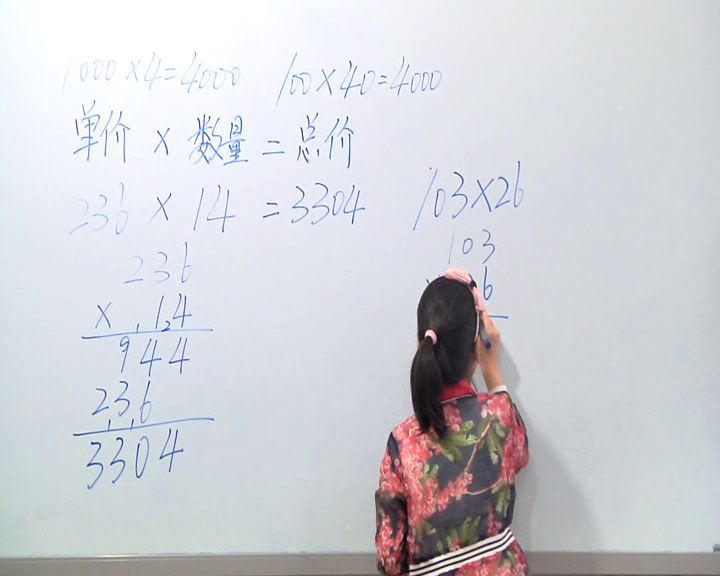 1000×4=4000 100×40=4000
单价 × 数量 = 总价
236 × 14 = 3304 103×26
236
× 14
944
236
3304
103
6